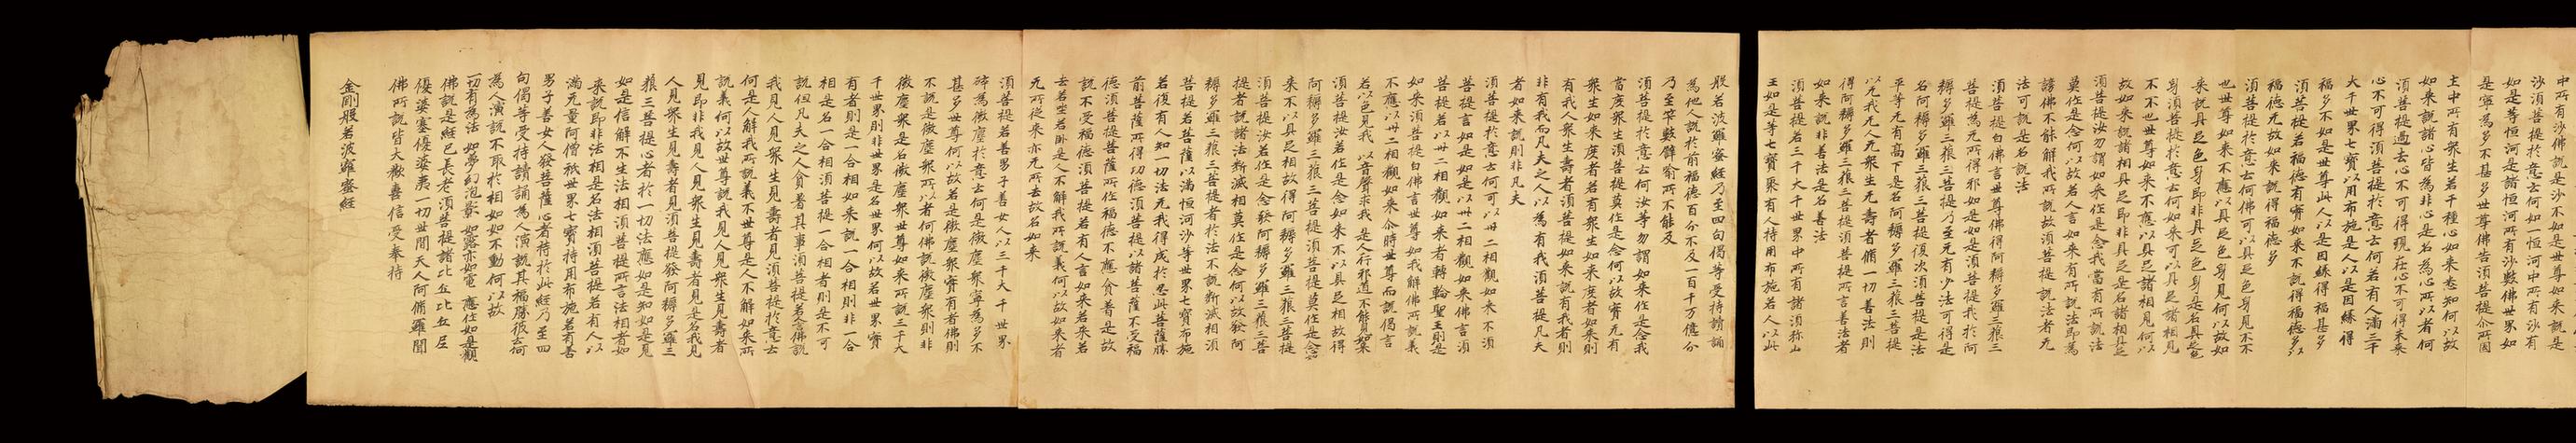 中所有沙佛說是沙不世尊如来說是
沙須菩提於意云何如一恒河中所有沙有
如是等恒河是諸恒河所有沙數佛世界如
是寧為多不甚多世尊佛告須菩提尒所國
土中所有衆生若干種心如来悉知何以故
如来說諸心皆為非心是名為心所以者何
須菩提過去心不可得現在心不可得未来
心不可得須菩提於意云何若有人滿三千
大千世界七寶以用布施是人以是因緣得
福多不如是世尊此人以是因緣得福甚多
須菩提若福德有實如来不說得福德多以
福德无故如来說得福德多
須菩提於意云何佛可以具足色身見不不
也世尊如来不應以具足色身見何以故如
来說具足色身即非具足色身是名具足色
身須菩提於意云何如来可以具足諸相見
不不也世尊如来不應以具足諸相見何以
故如来說諸相具足即非具足是名諸相具足
須菩提汝勿謂如来作是念我當有所說法
莫作是念何以故若人言如来有所說法即為
謗佛不能解我所說故須菩提說法者无
法可說是名說法
須菩提白佛言世尊佛得阿耨多羅三藐三
菩提為无所得耶如是如是須菩提我於阿
耨多羅三藐三菩提乃至无有少法可得是
名阿耨多羅三藐三菩提復次須菩提是法
平等无有高下是名阿耨多羅三藐三菩提
以无我无人无衆生无壽者脩一切善法則
得阿耨多羅三藐三菩提須菩提所言善法者
如来說非善法是名善法
須菩提若三千大千世界中所有諸須弥山
王如是等七寶聚有人持用布施若人以此
般若波羅蜜經乃至四句偈等受持讀誦
為他人說於前福德百分不及一百千万億分
乃至筭數譬喻所不能及
須菩提於意云何汝等勿謂如来作是念我
當度衆生須菩提莫作是念何以故實无有
衆生如来度者若有衆生如来度者如来則
有我人衆生壽者須菩提如来說有我者則
非有我而凡夫之人以為有我須菩提凡夫
者如来說則非凡夫
須菩提於意云何可以卅二相觀如来不須
菩提言如是如是以卅二相觀如来佛言須
菩提若以卅二相觀如来者轉輪聖王則是
如来須菩提白佛言世尊如我解佛所說義
不應以卅二相觀如来尒時世尊而說偈言
若以色見我 以音聲求我 是人行邪道 不能見如来
須菩提汝若作是念如来不以具足相故得
阿耨多羅三藐三菩提須菩提莫作是念如
来不以具足相故得阿耨多羅三藐三菩提
須菩提汝若作是念發阿耨多羅三藐三菩
提者說諸法斷滅相莫作是念何以故發阿
耨多羅三藐三菩提者於法不說斷滅相須
菩提若菩薩以滿恒河沙等世界七寶布施
若復有人知一切法无我得成於忍此菩薩勝
前菩薩所得功德須菩提以諸菩薩不受福
德須菩提菩薩所作福德不應貪著是故
說不受福德須菩提若有人言如来若来若
去若坐若卧是人不解我所說義何以故如来者
无所従来亦无所去故名如来
須菩提若善男子善女人以三千大千世界
碎為微塵於意云何是微塵衆寧為多不
甚多世尊何以故若是微塵衆實有者佛則
不說是微塵衆所以者何佛說微塵衆則非
微塵衆是名微塵衆世尊如来所說三千大
千世界則非世界是名世界何以故若世界實
有者則是一合相如来說一合相則非一合
相是名一合相須菩提一合相者則是不可
說但凡夫之人貪著其事須菩提若人言佛說
我見人見衆生見壽者見須菩提於意云
何是人解我所說義不世尊是人不解如来所
說義何以故世尊說我見人見衆生見壽者
見即非我見人見衆生見壽者見是名我見
人見衆生見壽者見須菩提發阿耨多羅三
藐三菩提心者於一切法應如是知如是見
如是信解不生法相須菩提所言法相者如
来說即非法相是名法相須菩提若有人以
滿无量阿僧祇世界七寶持用布施若有善
男子善女人發菩薩心者持於此經乃至四
句偈等受持讀誦為人演說其福勝彼云何
為人演說不取於相如如不動何以故
一切有為法 如夢幻泡影 如露亦如電 應作如是觀
佛說是經已長老須菩提諸比丘比丘尼
優婆塞優婆夷一切世間天人阿脩羅聞
佛所說皆大歡喜信受奉持
金剛般若波羅蜜經